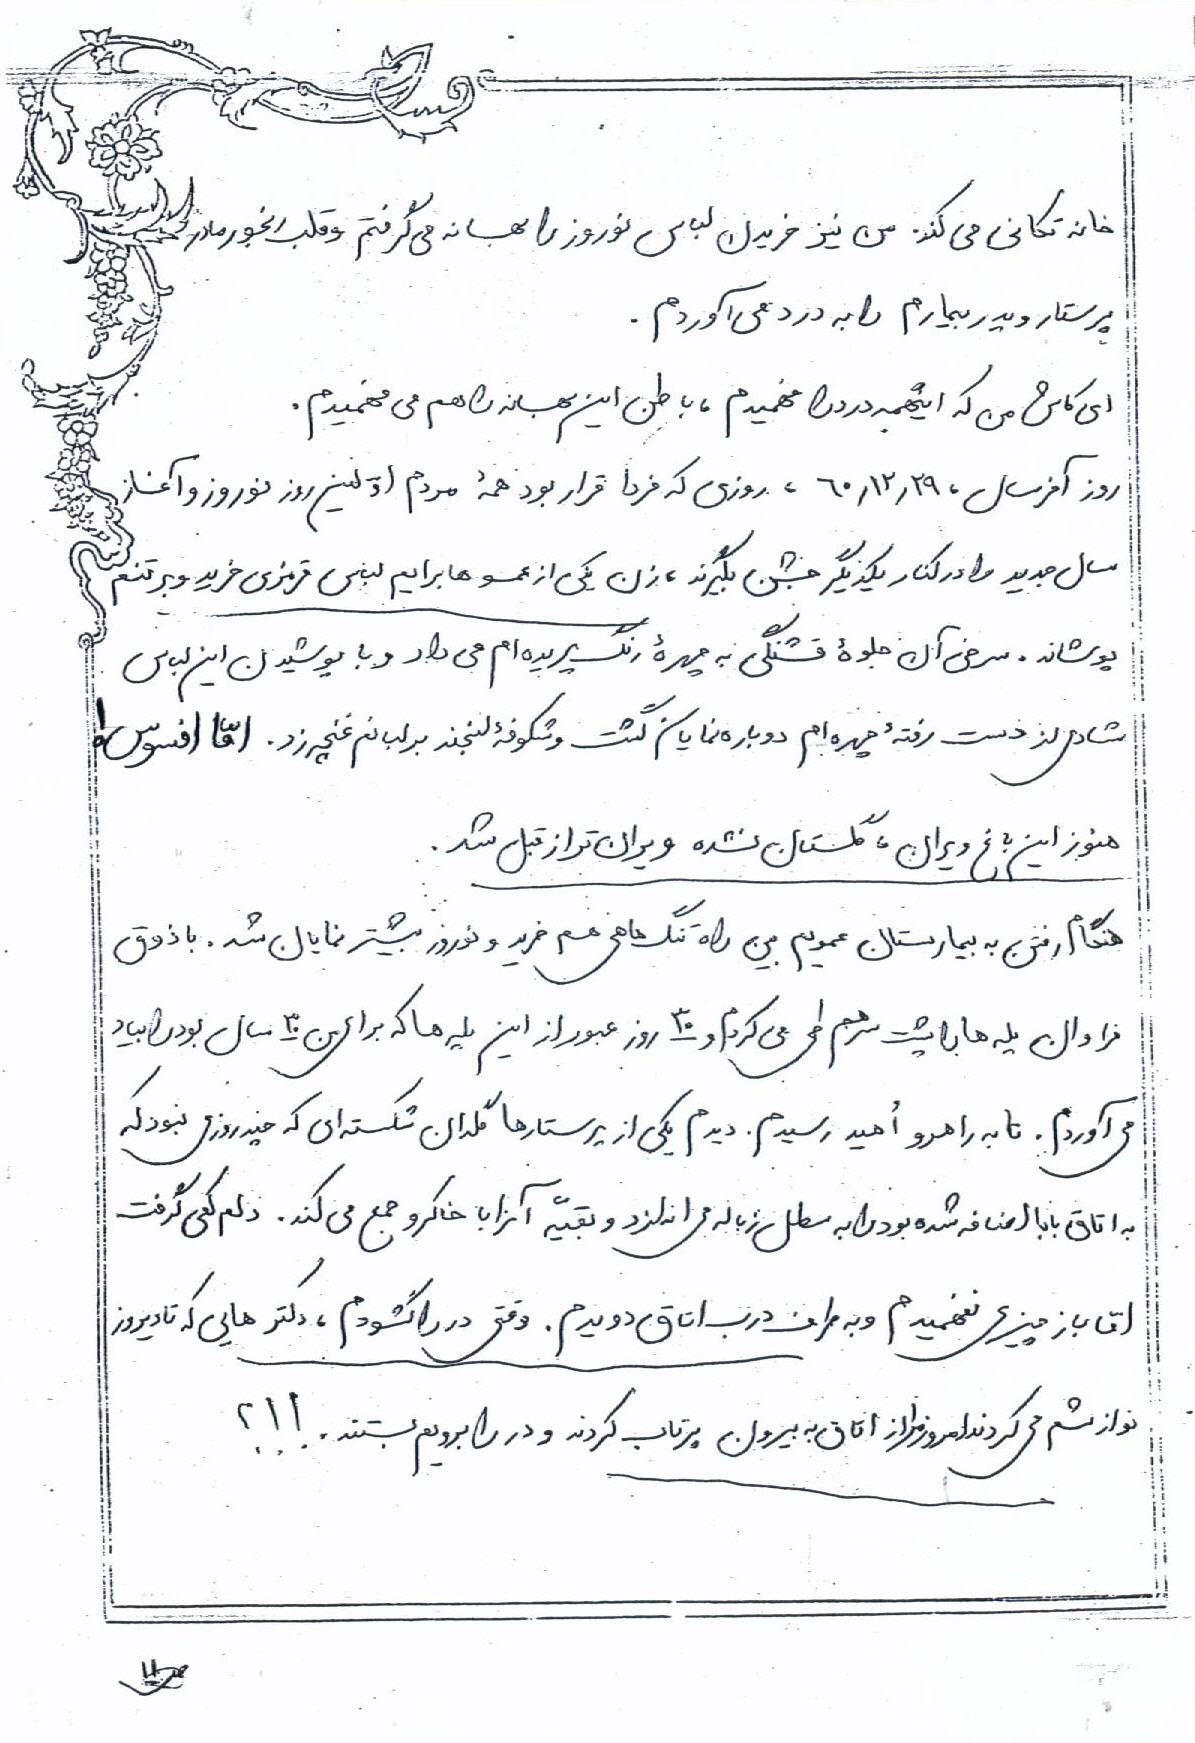 خانه تکانی می کند. من نیز خریدن لباس نوروز را بهانه می گرفتم و قلب رنجور مادر
پرستار و پدر بیمارم را به درد می آوردم .
ای کاش من که اینهمه درد را فهمیدم ، باطن این بهانه را هم می فهمیدم .
روز آخر سال ، ۶۰٫۱۲٫۲۹ ، روزی که فردا قرار بود همهٔ مردم اوّلین روز نوروز و آغاز
سال جدید را در کنار یکدیگر جشن بگیرند ، زن یکی از عموها برایم لباس قرمزی خرید و بر تنم
پوشاند . سرخی آن جلوهٔ قشنگی به چهرهٔ رنگ پریده ام می داد و با پوشیدن این لباس
شادی از دست رفتهٔ چهره ام دوباره نمایان گشت و شکوفهٔ لبخند بر لبانم غنچه زد . امّا افسوس!
هنوز این باغ ویران ، گلستان نشده ویران تر از قبل شد .
هنگام رفتن به بیمارستان عمویم بین راه تنگ ماهی هم خرید و نوروز بیشتر نمایان شد . با ذوق
فراوان پله ها را پشت سر هم طی می کردم و ۳۰ روز عبور از این پله ها که برای من ۳۰ سال بود را بیاد
می آوردم . تا به راهرو اُمید رسیدم . دیدم یکی از پرستارها گلدان شکسته ای که چند روزی نبود که
به اتاق بابا اضافه شده بود را به سطل زباله می اندازد و بقیّه آنرا با خاکرو جمع می کند . دلم کمی گرفت
امّا باز چیزی نفهمیدم و به طرف درب اتاق دویدم . وقتی در را گشودم ، دکتر هایی که تا دیروز
نوازشم می کردند امروز مرا از اتاق به بیرون پرتاب کردند و در را برویم بستند . !!؟
۱۱